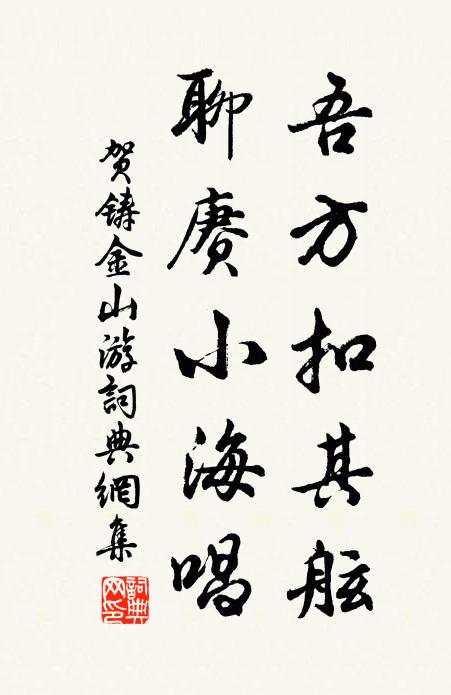 吾方扣其舷
聊赓小海唱
贺铸金山游詞典網集
詞典网印